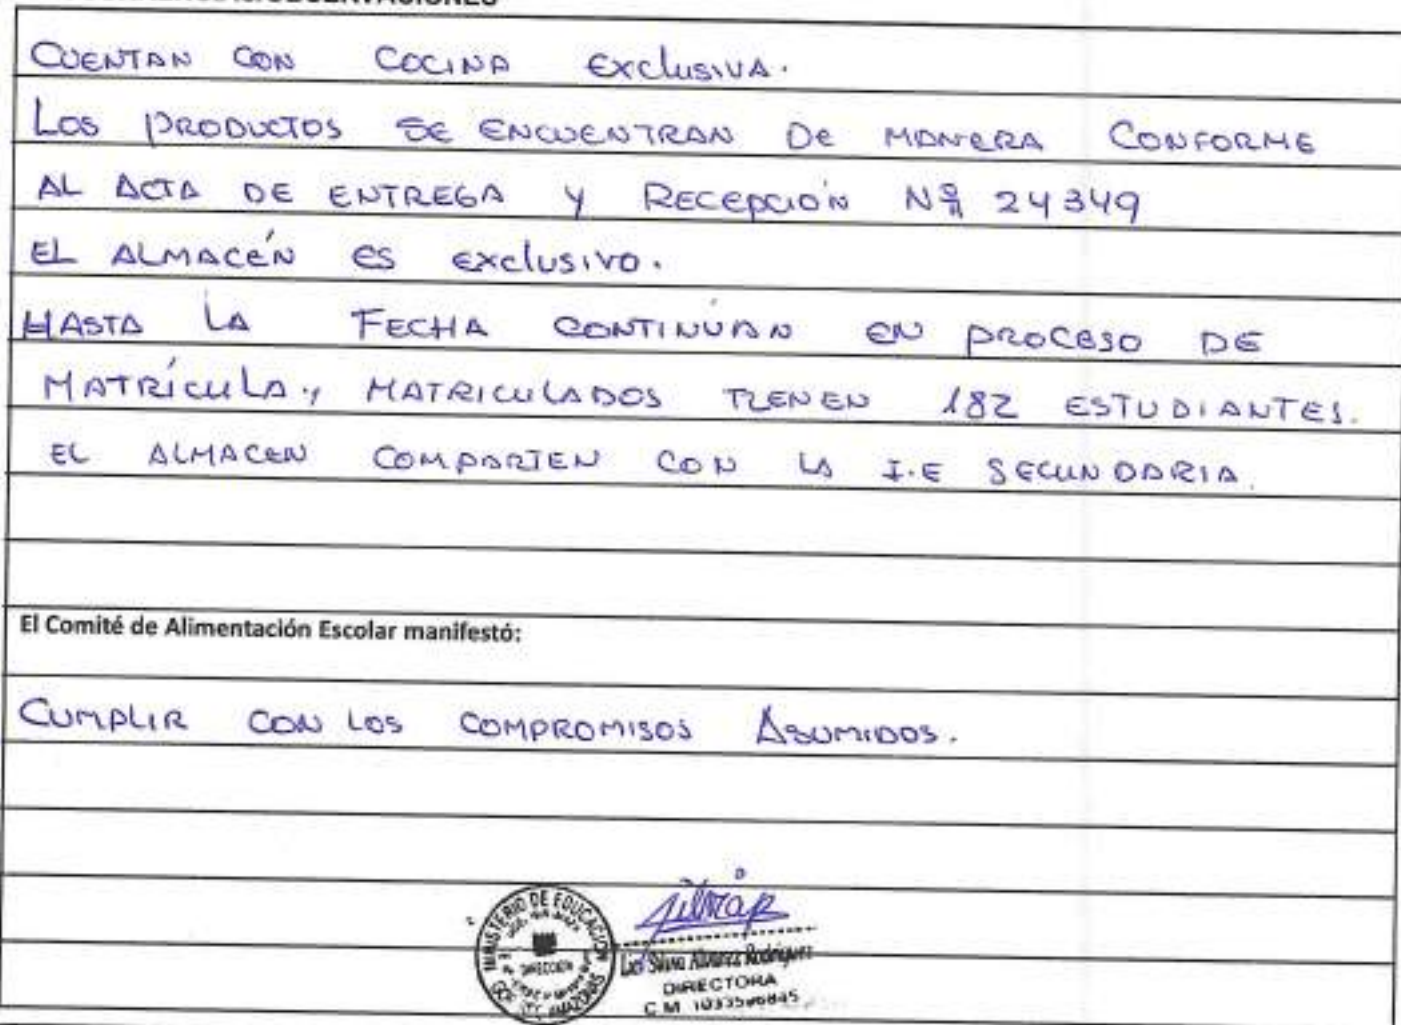 OBSERVACIONES
CUENTAN CON COCINA EXCLUSIVA.
LOS PRODUCTOS SE ENCUENTRAN DE MANERA CONFORME
AL ACTA DE ENTREGA Y RECEPCIÓN Nº 24349
EL ALMACÉN ES EXCLUSIVO.
HASTA LA FECHA CONTINÚAN EN PROCESO DE
MATRÍCULA, MATRICULADOS TIENEN 182 ESTUDIANTES.
EL ALMACEN COMPARTEN CON LA I.E SECUNDARIA.
El Comité de Alimentación Escolar manifestó:
CUMPLIR CON LOS COMPROMISOS ASUMIDOS.
MINISTERIO DE EDUCACION
DIRECCION
AMAZONAS
Rodriguez
DIRECTORA
C.M